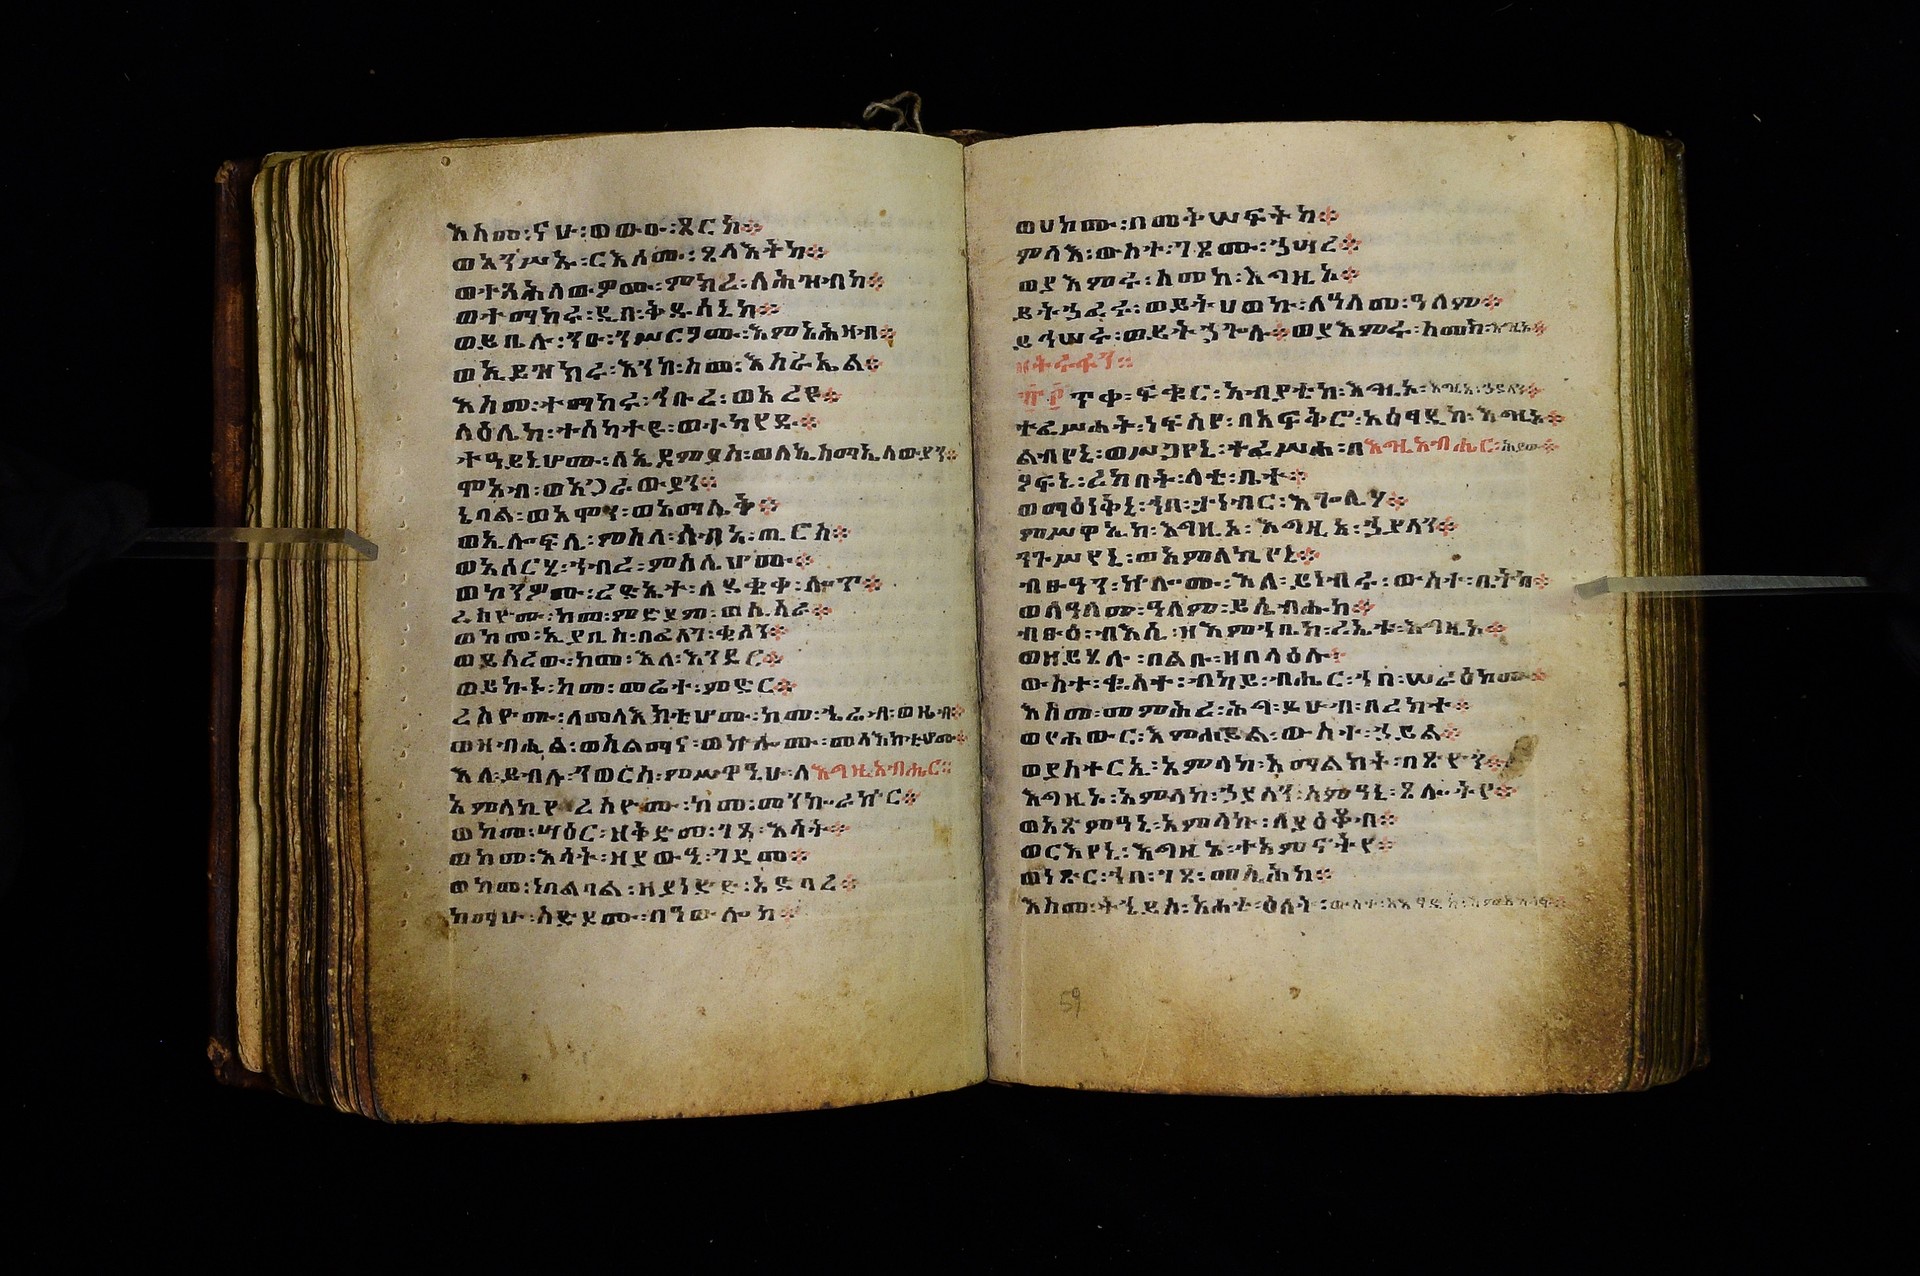 እስመ፡ናሁ፡ወውዑ፡ጸርከ።
ወአንሥኡ፡ርእሰሙ፡ጸላእትከ።
ወተጓሕለውዎሙ፡ምክረ፡ለሕዝብከ።
ወተማከሩ፡ዲበ፡ቅዱሳኒከ።
ወይቤሉ፡ንዑ፡ንሥርዎሙ፡እምአሕዛብ።
ወኢይዝክሩ፡እንከ፡ስመ፡እስራኤል።
እስመ፡ተማከሩ፡ኅቡረ፡ወአረዩ።
ላዕሌከ፡ተሰካተዩ፡ወተካየዱ።
ተዓይኒሆሙ፡ለኢዶምያስ፡ወለኢስማኢላውያን።
ሞአብ፡ወአጋራውያን።
ጌባል፡ወአሞን፡ወአማሌቅ።
ወኢሎፍሊ፡ምስለ፡ሰብአ፡ጢሮስ።
ወአሰርሂ፡ኀብረ፡ምስሌሆሙ።
ወኮንዎሙ፡ረድኤተ፡ለደቂቀ፡ሎጥ።
ረስዮሙ፡ከመ፡ምድያም፡ወሲሳራ።
ወከመ፡ኢያቢስ፡በፈለገ፡ቂሶን።
ወይሰረው፡ከመ፡እለ፡እንዶር።
ወይኩኑ፡ከመ፡መሬተ፡ምድር።
ረስዮሙ፡ለመላእክቲሆሙ፡ከመ፡ሔሬብ፡ወዜብ።
ወዛብሔል፡ወስልማና፡ወኵሎሙ፡መላእክቲሆሙ።
እለ፡ይብሉ፡ንወርስ፡ምሥዋዒሁ፡ለእግዚአብሔር።
አምላኪየ፡ረስዮሙ፡ከመ፡መንኰራኵር።
ወከመ፡ሣዕር፡ዘቅድመ፡ገጸ፡እሳት።
ወከመ፡እሳት፡ዘያውዒ፡ገዳመ።
ወከመ፡ነበልባል፡ዘያነድድ፡አድባረ።
ከማሁ፡ስድዶሙ፡በዓውሎከ።
ወሀከሙ፡በመትሠፍትከ።
ምላእ፡ውስተ፡ገጾሙ፡ኃሣረ።
ወያእምሩ፡ስመከ፡እግዚኦ።
ይትኃፈሩ፡ወይትሀወኩ፡ለዓለመ፡ዓለም።
ይኅሡሩ፡ወይትኃጐሉ።ወያእምሩ፡ስመከ፡እግዚአ።
ዘትረፋን።
፹፫ጥቀ፡ፍቁር፡አብያቲከ፡እግዚኦ፡እግዚአ፡ኃያላን።
ተፈሥሐት፡ነፍስየ፡በአፍቅሮ፡አዕፃዲከ፡እግዚኦ።
ልብየኒ፡ወሥጋየኒ፡ተፈሥሐ፡በእግዚአብሔር፡ሕያው።
ዖፍኒ፡ረከበት፡ላቲ፡ቤተ።
ወማዕነቅኒ፡ኀበ፡ታነብር፡እጐሊሃ።
ምሥዋዒከ፡እግዚኦ፡እግዚአ፡ኃያላን።
ንጉሥየኒ፡ወአምላኪየኒ።
ብፁዓን፡ኵሎሙ፡እለ፡ይነብሩ፡ውስተ፡ቤትከ።
ወለዓለመ፡ዓለም፡ይሴብሑከ።
ብፁዕ፡ብእሲ፡ዘእምኀቤከ፡ረድኤቱ፡እግዚኦ።
ወዘይሄሉ፡በልቡ፡ዘበላዕሉ።
ውስተ፡ቈላተ፡ብካይ፡ብሔር፡ኀበ፡ሠራዕከሙ።
እስመ፡መምሕረ፡ሕግ፡ይሁብ፡በረከተ።
ወየሐውር፡እምኃይል፡ውስተ፡ኃይል።
ወያስተርኢ፡አምላከ፡አማልክት፡በጽዮን።
እግዚኦ፡አምላከ፡ኃያላን፡ስምዓኒ፡ጸሎትየ።
ወአጽምዓኒ፡አምላኩ፡ለያዕቆብ።
ወርእየኒ፡እግዚኦ፡ተአምኖትየ።
ወነጽር፡ኀበ፡ገጸ፡መሲሕከ።
እስመ፡ትኄይስ፡አሐቲ፡ዕለት፡ውስተ፡አዕፃዲከ፡እምአእላፍ።
59